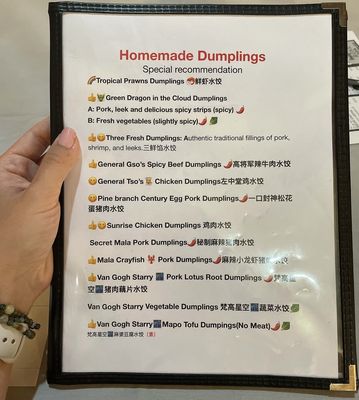 Homemade Dumplings
Special recommendation
🌈Tropical Prawns Dumplings 🦐鲜虾水饺
👍🐲Green Dragon in the Cloud Dumplings
A: Pork, leek and delicious spicy strips (spicy)🌶️
B: Fresh vegetables (slightly spicy)🌶️🥬
👍😋Three Fresh Dumplings: Authentic traditional fillings of pork,
shrimp, and leeks.三鲜馅水饺
👍General Gso's Spicy Beef Dumplings 🌶️高将军辣牛肉水饺
😋General Tso's Chicken Dumplings左中堂鸡水饺
😋Pine branch Century Egg Pork Dumplings🌶️一口封神松花
蛋猪肉水饺
👍😋Sunrise Chicken Dumplings 鸡肉水饺
Secret Mala Pork Dumplings🌶️秘制麻辣猪肉水饺
👍Mala Crayfish 🦞 Pork Dumplings🌶️麻辣小龙虾猪肉水饺
👍Van Gogh Starry 🌃 Pork Lotus Root Dumplings🌶️梵高星
空🌃猪肉藕片水饺
Van Gogh Starry Vegetable Dumplings 梵高星空🌃蔬菜水饺🥬
👍Van Gogh Starry🌃Mapo Tofu Dumpings(No Meat)🌶️🥬
梵高星空🌃麻婆豆腐水饺（素）